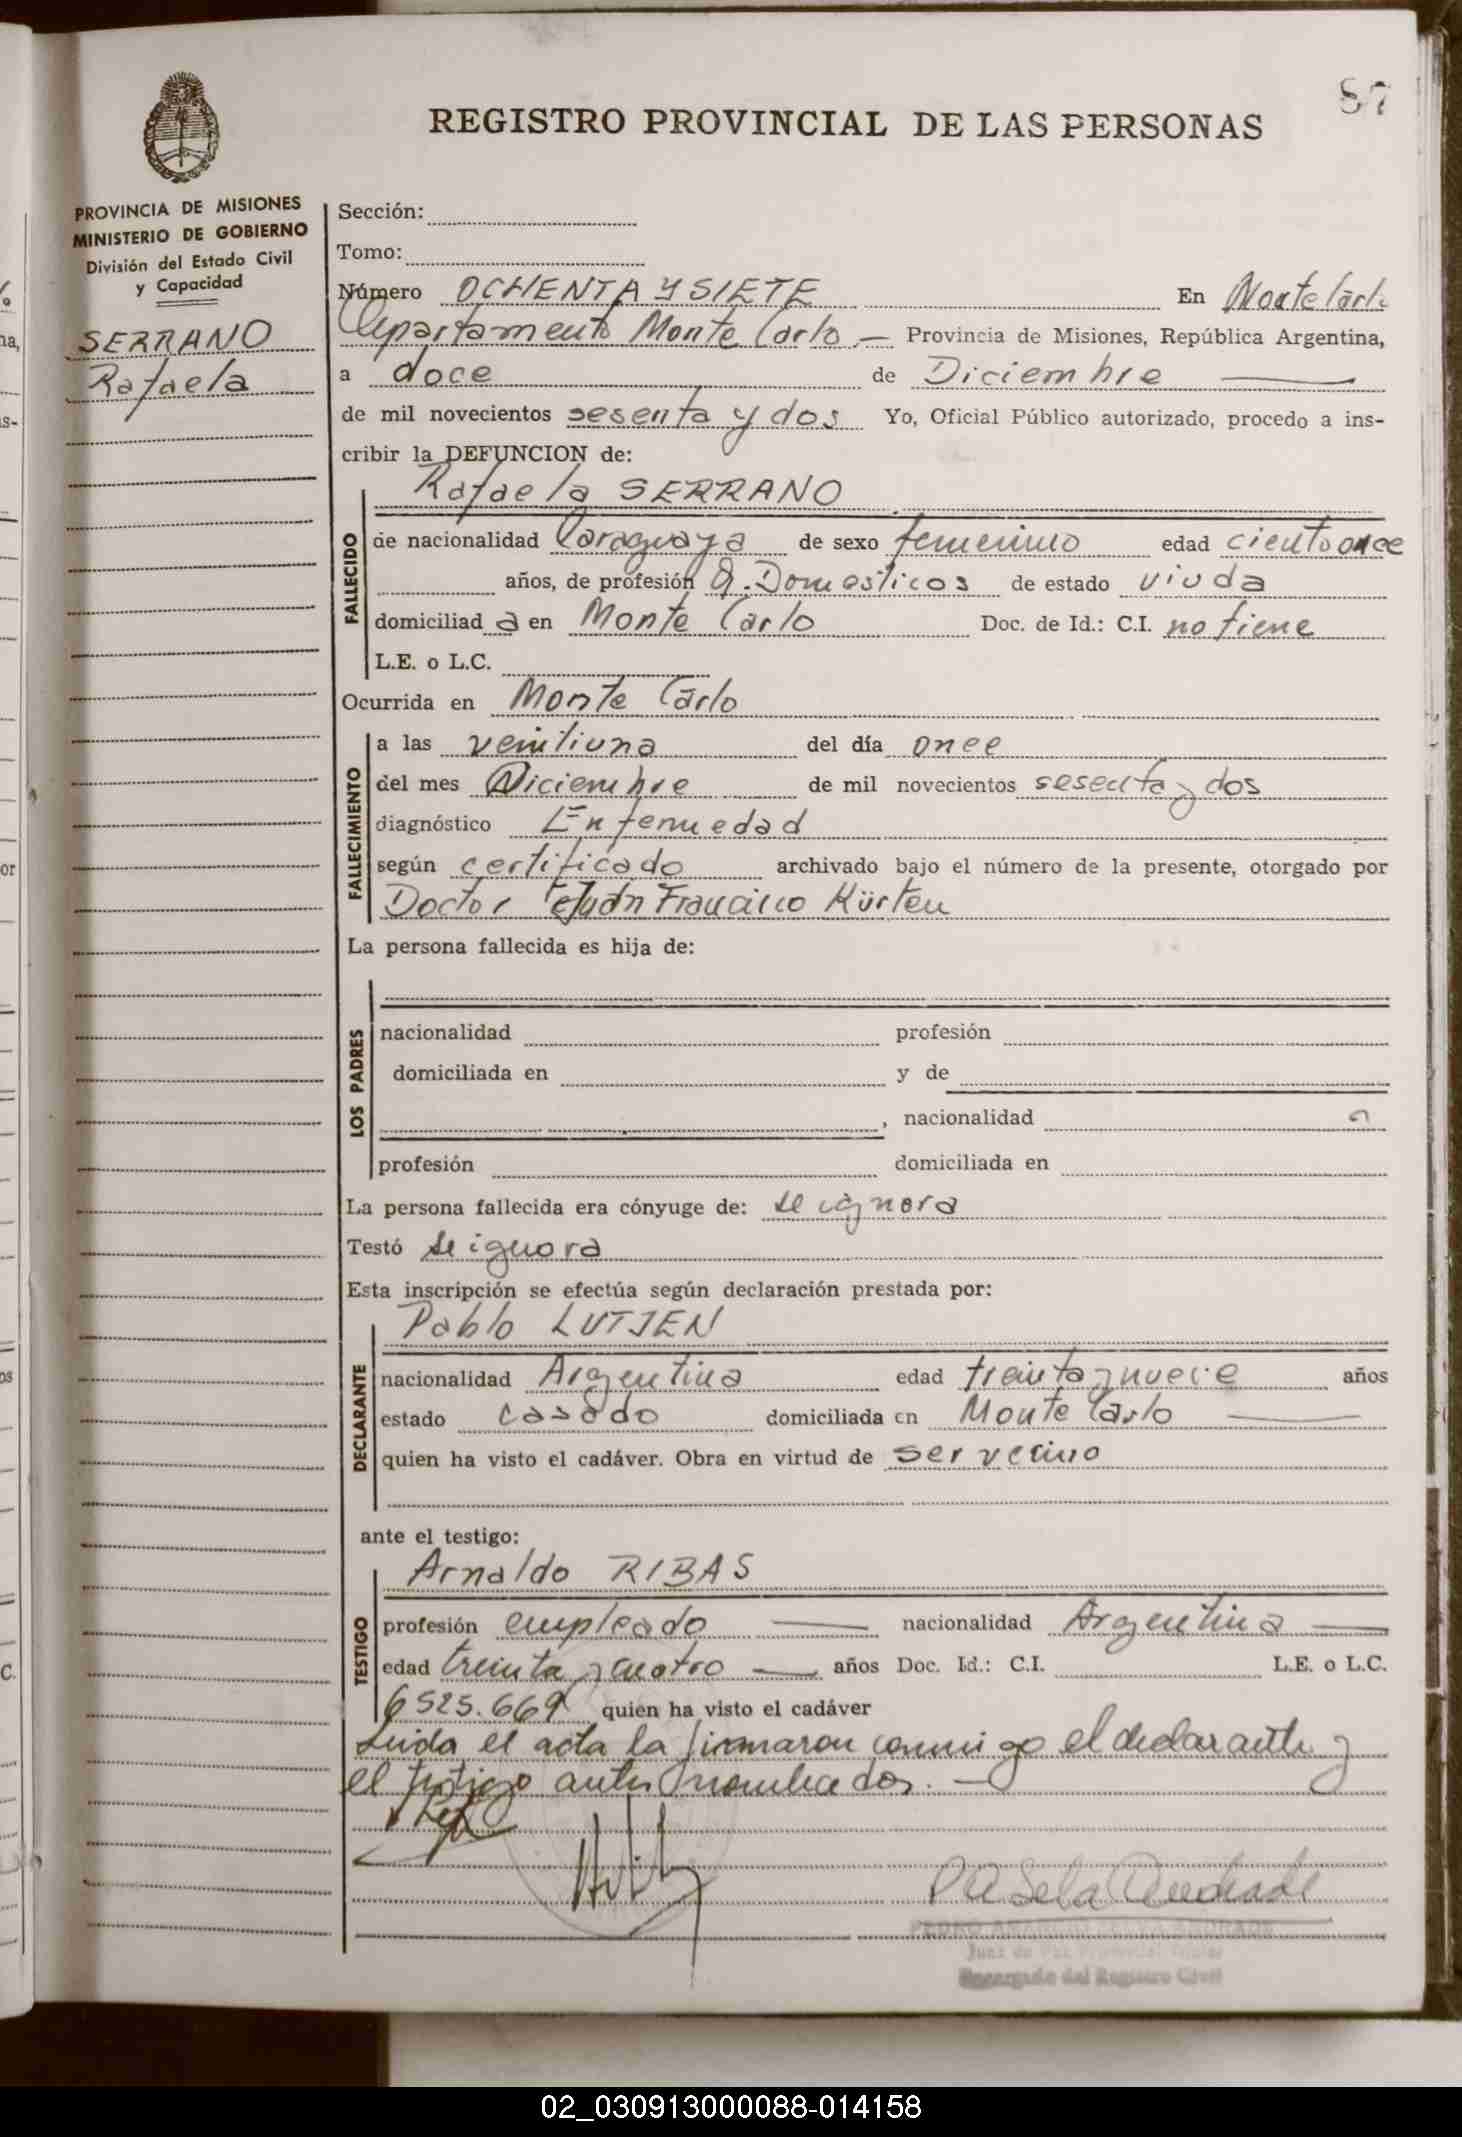 87
REGISTRO PROVINCIAL DE LAS PERSONAS
PROVINCIA DE MISIONES
MINISTERIO DE GOBIERNO
División del Estado Civil
y Capacidad
SERRANO
Rafaela
Sección:
Tomo:
Número OCHENTA Y SIETE En Monte Carlo
Departamento Monte Carlo.— Provincia de Misiones, República Argentina,
a doce de Diciembre —
de mil novecientos sesenta y dos Yo, Oficial Público autorizado, procedo a ins-
cribir la DEFUNCION de:
Rafaela SERRANO
FALLECIDO
de nacionalidad Paraguaya de sexo femenino edad ciento once
años, de profesión Q. Domesticos de estado viuda
domiciliad a en Monte Carlo Doc. de Id.: C.I. no tiene
L.E. o L.C.
Ocurrida en Monte Carlo
FALLECIMIENTO
a las veintiuna del día once
del mes Diciembre de mil novecientos sesenta y dos
diagnóstico Enfermedad
según certificado archivado bajo el número de la presente, otorgado por
Doctor Juan Francisco Kürten
La persona fallecida es hija de:
LOS PADRES
nacionalidad profesión
domiciliada en y de
, nacionalidad
profesión domiciliada en
La persona fallecida era cónyuge de: se ignora
Testó se ignora
Esta inscripción se efectúa según declaración prestada por:
Pablo LUTJEN
DECLARANTE
nacionalidad Argentina edad treinta y nueve años
estado casado domiciliada en Monte Carlo —
quien ha visto el cadáver. Obra en virtud de ser vecino
ante el testigo:
Arnaldo RIBAS
TESTIGO
profesión empleado — nacionalidad Argentina —
edad treinta y cuatro — años Doc. Id.: C.I. L.E. o L.C.
6525.669 quien ha visto el cadáver
Leida el acta la firmaron conmigo el declarante y
el testigo antes nombrados. —
PEDRO ANDRADE
Juez de Paz
Encargado del Registro Civil
02_030913000088-014158